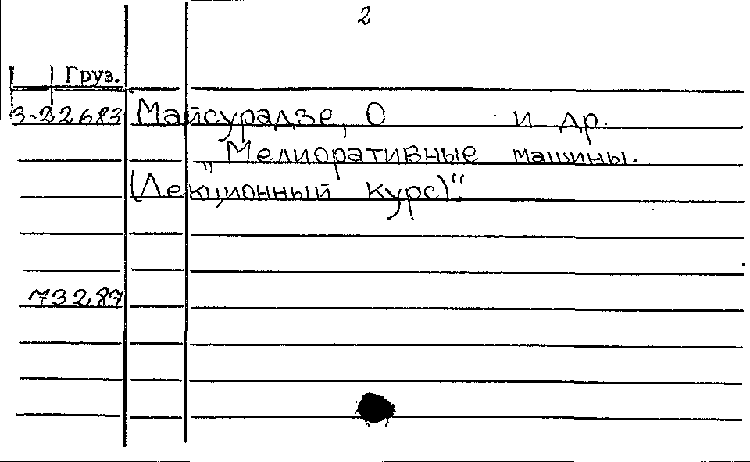 2
Груз.
3-22683 Майсурадзе, О и др.
„Мелиоративные машины.
(Лекционный курс)“.
73287